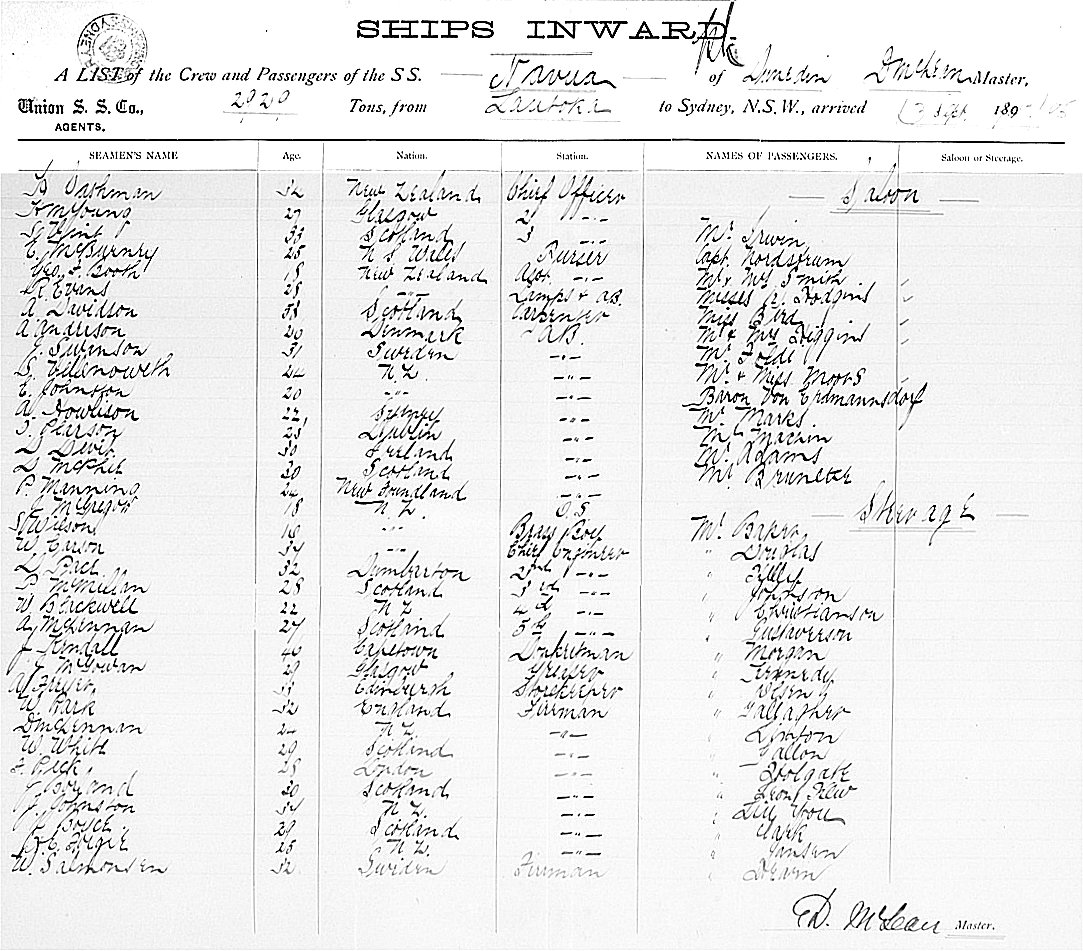 SHIPS INWARD.
A LIST of the Crew and Passengers of the S S. Navua of Dunedin D McLean Master,
Union S. S. Co., 2929 Tons, from Lautoka to Sydney, N.S.W., arrived Sept 189
AGENTS.
SEAMEN'S NAME Age. Nation. Station. NAMES OF PASSENGERS. Saloon or Steerage.
Saloon
New Zealand Chief Officer
H McYoung 27 Glasgow 2 -"-
33 Scotland 3 -"- Mr. Irwin
E. McBurney 25 N S Wales Purser Capt. Nordstrum
Geo. F. Booth 18 New Zealand Asst. -"- Mr & Mrs Smith "
R Evans 28 -"- Lamps & AB. Misses Hodgins "
Davidson 38 Scotland Carpenter Miss Bird "
A Anderson 20 Denmark AB. Mr & Mrs Higgins "
J. Swenson 31 Sweden -"- Mr
24 N.Z. -"- Mr. & Miss Moors
E. Johnston 20 -"- -"- Baron Von Erdmannsdorf
A. Howison 22 Sydney -"- Mr. Marks
Pearson 25 Dublin -"- Mr Machin
D. Devit 30 Ireland -"- Mr. Adams
D. McPhee 30 Scotland -"- Mr
P. Manning New Foundland -"-
McGregor 18 N.Z. O.S. Steerage
S Wilson 18 -"- Brass Boy Mr. Baker
W. Carson 34 -"- Chief Engineer " Douglas
32 Dumbarton 2nd -"- " Filley
P McMillan 28 Scotland 3rd -"- " Johnson
W. Blackwell 22 N Z 4th -"- " Christianson
A. McLennan 27 Scotland 5th -"- " Gustaverson
J. Kendall 40 Capetown Donkeyman " Morgan
J McGowan 29 Glasgow Greaser " Kennedy
A. Fraser Edinburgh Storekeeper " Olsen
W. Park 32 England Fireman " Gallagher
D McLennan 24 N.Z. -"- " Linton
W. White 29 Scotland -"- " Fallon
F. Peck 28 London -"- " Holgate
Boyland 30 Scotland -"- "
J. Johnston 34 N.Z. -"- "
J. Boyce. 29 Scotland -"- " Clark
25 N.Z. -"- " Jansen
W. Salmonsen 32 Sweden Fireman " Dearn
D. McLean Master.